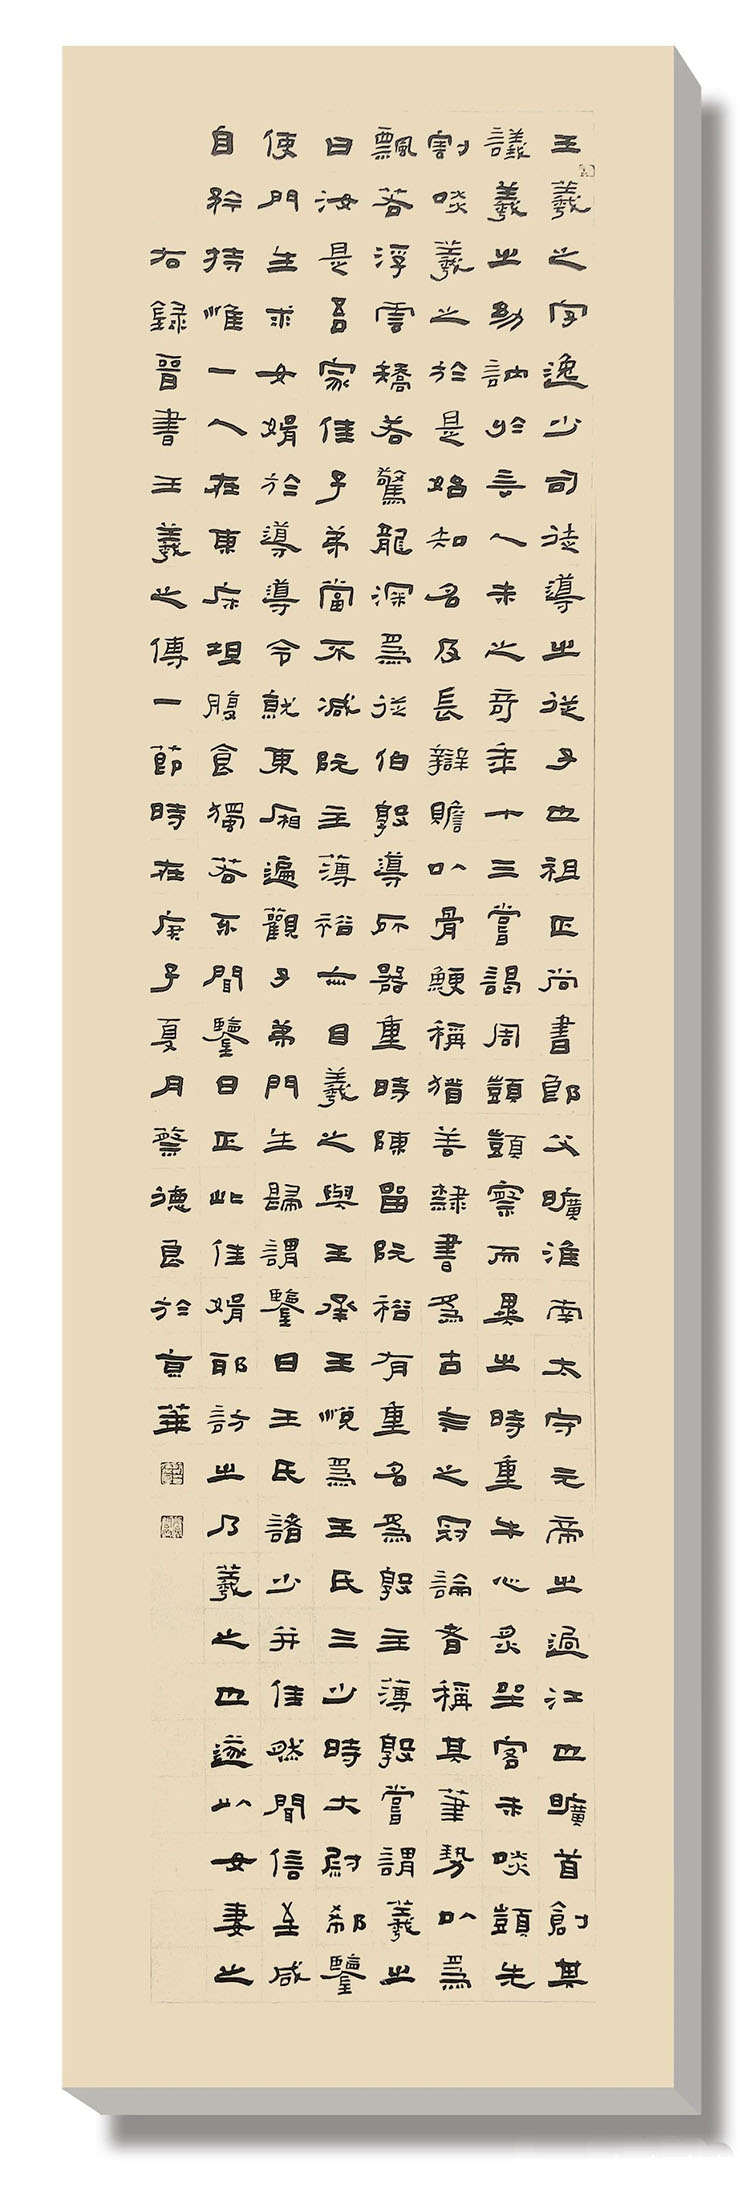 王羲之字逸少司徒導之從子也祖正尚書郎父曠淮南太守元帝之過江也曠首創其
議羲之幼訥於言人未之奇年十三嘗謁周顗顗察而異之時重牛心炙坐客未啖顗先
割啖羲之於是始知名及長辯贍以骨鯁稱猶善隸書為古今之冠論者稱其筆勢以為
飄若浮雲矯若驚龍深為從伯敦導所器重時陳留阮裕有重名為敦主薄敦嘗謂羲之
曰汝是吾家佳子弟當不減阮主薄裕亦目羲之與王承王悅為王氏三少時太尉郗鑒
使門生求女婿於導導令就東廂遍觀子弟門生歸謂鑒曰王氏諸少并佳然聞信至咸
自矜持惟一人在東床坦腹食獨若不聞鑒曰正此佳婿耶訪之乃羲之也遂以女妻之
右錄晉書王羲之傳一節時在庚子夏月蔡德良於京華